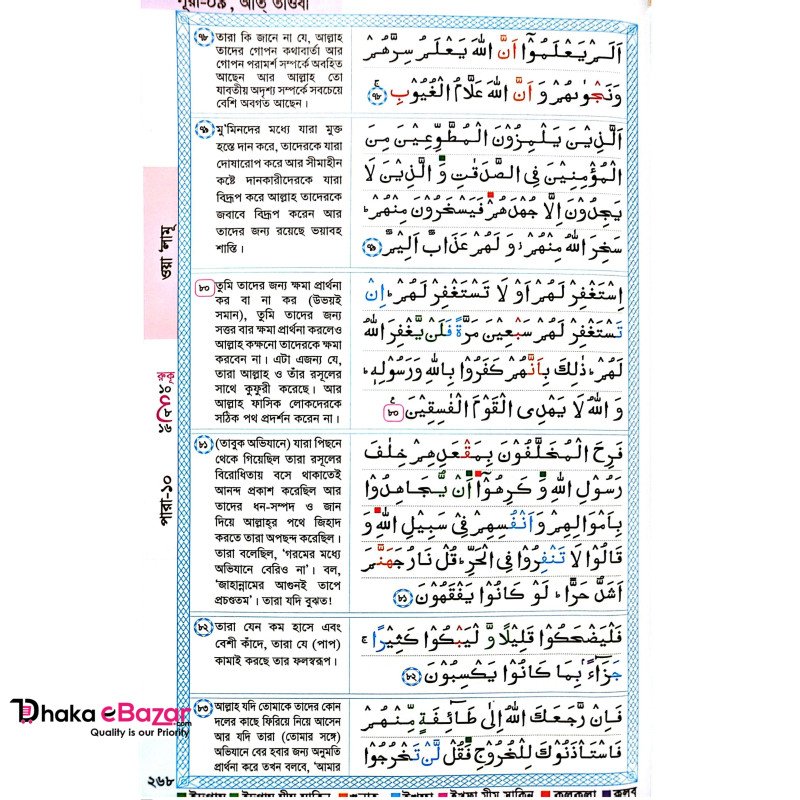 সূরা-০৯, আত্ তাওবা
৭৮ তারা কি জানে না যে, আল্লাহ
তাদের গোপন কথাবার্তা আর
গোপন পরামর্শ সম্পর্কে অবহিত
আছেন আর আল্লাহ তো
যাবতীয় অদৃশ্য সম্পর্কে সবচেয়ে
বেশি অবগত আছেন।
اَلَمْ يَعْلَمُوْۤا اَنَّ اللّٰهَ يَعْلَمُ سِرَّهُمْ
وَنَجْوٰىهُمْ وَ اَنَّ اللّٰهَ عَلَّامُ الْغُيُوْبِ ۚ ৭৮
৭৯ মু'মিনদের মধ্যে যারা মুক্ত
হস্তে দান করে, তাদেরকে যারা
দোষারোপ করে আর সীমাহীন
কষ্টে দানকারীদেরকে যারা
বিদ্রূপ করে আল্লাহ তাদেরকে
জবাবে বিদ্রূপ করেন আর
তাদের জন্য রয়েছে ভয়াবহ
শাস্তি।
اَلَّذِيْنَ يَلْمِزُوْنَ الْمُطَّوِّعِيْنَ مِنَ
الْمُؤْمِنِيْنَ فِى الصَّدَقٰتِ وَ الَّذِيْنَ لَا
يَجِدُوْنَ اِلَّا جُهْدَهُمْ فَيَسْخَرُوْنَ مِنْهُمْ ؕ
سَخِرَ اللّٰهُ مِنْهُمْ ؗ وَ لَهُمْ عَذَابٌ اَلِيْمٌ ৭৯
৮০ তুমি তাদের জন্য ক্ষমা প্রার্থনা
কর বা না কর (উভয়ই
সমান), তুমি তাদের জন্য
সত্তর বার ক্ষমা প্রার্থনা করলেও
আল্লাহ কক্ষনো তাদেরকে ক্ষমা
করবেন না। এটা এজন্য যে,
তারা আল্লাহ ও তাঁর রসূলের
সাথে কুফুরী করেছে। আর
আল্লাহ ফাসিক লোকদেরকে
সঠিক পথ প্রদর্শন করেন না।
اِسْتَغْفِرْ لَهُمْ اَوْ لَا تَسْتَغْفِرْ لَهُمْ ؕ اِنْ
تَسْتَغْفِرْ لَهُمْ سَبْعِيْنَ مَرَّةً فَلَنْ يَّغْفِرَ اللّٰهُ
لَهُمْ ؕ ذٰلِكَ بِاَنَّهُمْ كَفَرُوْا بِاللّٰهِ وَرَسُوْلِهٖ ؕ
وَ اللّٰهُ لَا يَهْدِى الْقَوْمَ الْفٰسِقِيْنَ ৮০
৮১ (তাবুক অভিযানে) যারা পিছনে
থেকে গিয়েছিল তারা রসূলের
বিরোধিতায় বসে থাকাতেই
আনন্দ প্রকাশ করেছিল আর
তাদের ধন-সম্পদ ও জান
দিয়ে আল্লাহ্‌র পথে জিহাদ
করতে তারা অপছন্দ করেছিল।
তারা বলেছিল, 'গরমের মধ্যে
অভিযানে বেরিও না'। বল,
'জাহান্নামের আগুনই তাপে
প্রচণ্ডতম'। তারা যদি বুঝত!
فَرِحَ الْمُخَلَّفُوْنَ بِمَقْعَدِهِمْ خِلٰفَ
رَسُوْلِ اللّٰهِ وَ كَرِهُوْۤا اَنْ يُّجَاهِدُوْا
بِاَمْوَالِهِمْ وَاَنْفُسِهِمْ فِىْ سَبِيْلِ اللّٰهِ وَ
قَالُوْا لَا تَنْفِرُوْا فِى الْحَرِّ ؕ قُلْ نَارُ جَهَنَّمَ
اَشَدُّ حَرًّا ؕ لَوْ كَانُوْا يَفْقَهُوْنَ ৮১
৮২ তারা যেন কম হাসে এবং
বেশী কাঁদে, তারা যে (পাপ)
কামাই করছে তার ফলস্বরূপ।
فَلْيَضْحَكُوْا قَلِيْلًا وَّ لْيَبْكُوْا كَثِيْرًا ۚ
جَزَآءًۢ بِمَا كَانُوْا يَكْسِبُوْنَ ৮২
৮৩ আল্লাহ যদি তোমাকে তাদের কোন
দলের কাছে ফিরিয়ে নিয়ে আসেন
আর যদি তারা (তোমার সঙ্গে)
অভিযানে বের হবার জন্য অনুমতি
প্রার্থনা করে তখন বলবে, 'আমার
فَاِنْ رَّجَعَكَ اللّٰهُ اِلٰى طَآئِفَةٍ مِّنْهُمْ
فَاسْتَاْذَنُوْكَ لِلْخُرُوْجِ فَقُلْ لَّنْ تَخْرُجُوْا
ওয়া 'লামূ
রুকূ
১৬/৮/১০
পারা-১০
২৬৮
Dhaka eBazar.com
Quality is our Priority